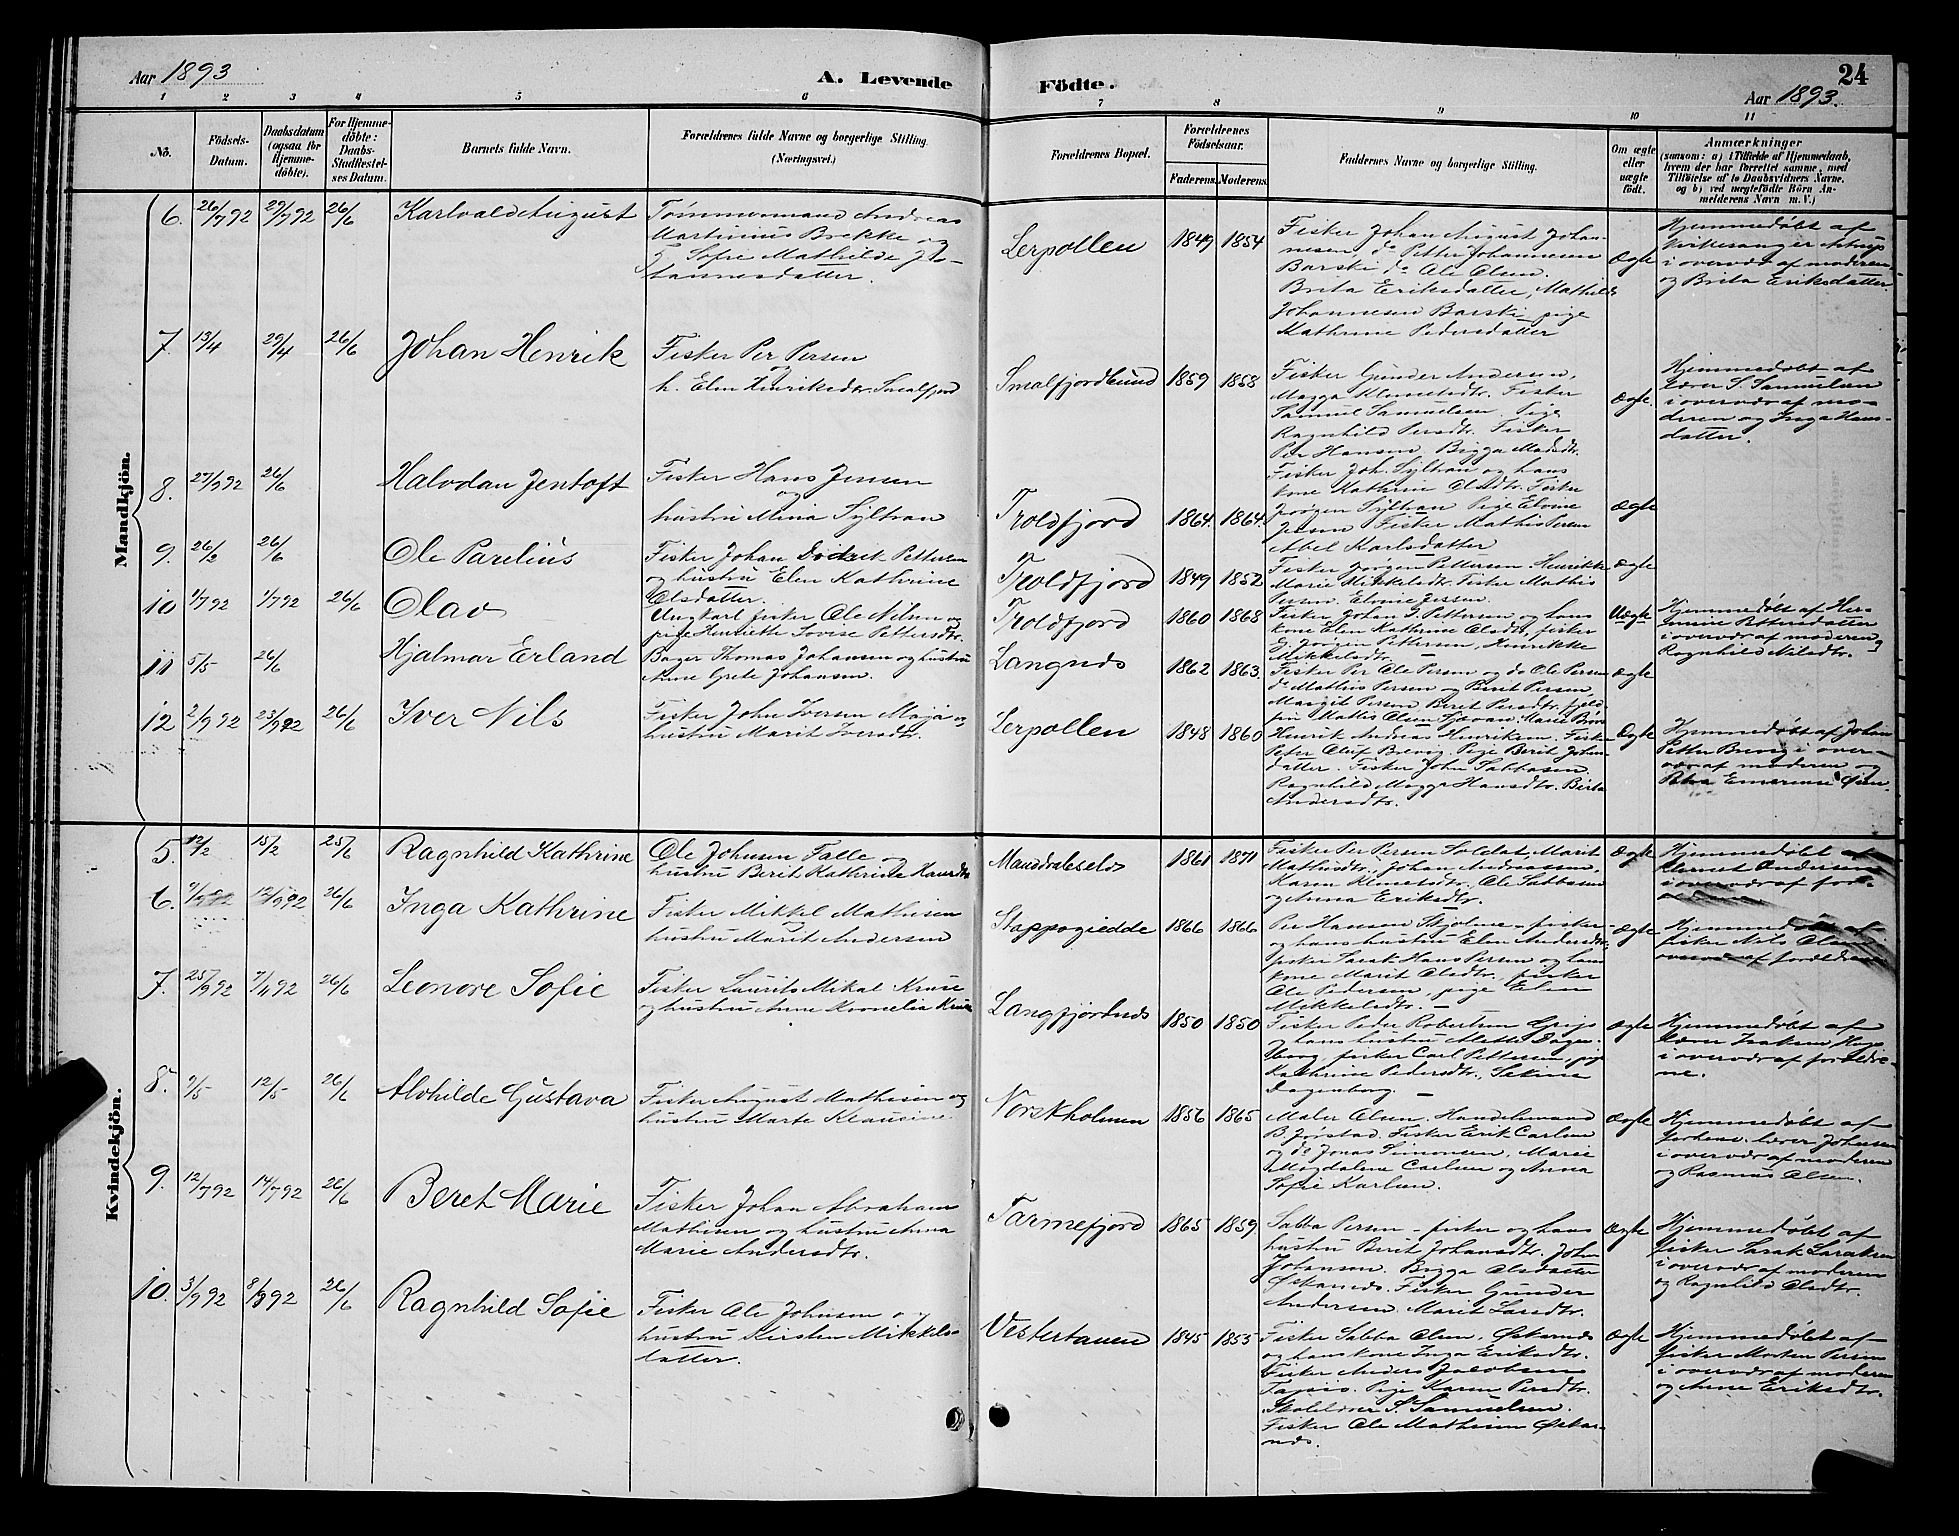 Aar 1893
A. Levende
Födte.
24
Aar 1893.
1 2 3 4 5 6 7 8 9 10 11
No.
Födsels-
Datum.
Daabsdatum
(ogsaa for
Hjemme-
döbte).
For Hjemme-
döbte:
Daabs-
Stadfæstel-
ses Datum.
Barnets fulde Navn.
Forældrenes fulde Navne og borgerlige Stilling
(Næringsvei.)
Forældrenes Bopæl.
Forældrenes
Födselsaar.
Faderens. Moderens.
Faddernes Navne og borgerlige Stilling.
Om ægte
eller
uægte
födt.
Anmærkninger
(saasom: a) i Tilfælde af Hjemmedaab,
hvem der har forrettet samme, med
Tilföielse af to Daabsvidners Navne,
og b) ved uægtefödte Börn An-
melderens Navn m. V.)
Mandkjön.
6. 26/792 29/792 26/6 Karlvald August
Tømmermand Andreas
Martinius Brekke og
Sofie Mathilde Jo-
hannesdatter.
Lerpollen 1849 1854
Fisker Johan August Johan-
nesen, do Petter Johannesen
Barski do Ole Olsen.
Brita Eriksdatter, Mathilde
Johannesen Barski pige
Kathrine Pedersdatter
Ægte
Hjemmedøbt af
kirkesanger
i overvær af moderen
og Brita Eriksdatter.
7. 13/4 29/4 26/6 Johan Henrik
Fisker Per Persen
og
h. Elen Henriksdtr. Smalfjord
Smalfjordbund 1859 1858
Fisker Gunder Andersen,
Magga Klemetsdtr. Fisker
Samuel Samuelsen. Pige
Ragnhild Persdtr. Fisker
Per Hansen, Bigga Madsdtr.
ægte.
Hjemmedøbt af
Lærer S. Samuelsen
i overvær af mo-
deren og Inga Hans-
datter.
8. 27/992 26/6 Halvdan Jentoft
Fisker Hans Jensen
og
hustru Mina Syltran
Troldfjord 1864. 1864.
Fisker Joh. Syltran og hans
kone Kathrine Olsdtr. Fisker
Jørgen Syltran Pige Elvine
Jessen Fisker Mathis Persen
Abel Karlsdatter
ægte
9. 26/2 26/6 Ole Parelius
Fisker Johan Pettersen
og hustru Elen Kathrine
Olsdatter.
Troldfjord 1849 1852
Fisker Jørgen Pettersen Henrikke
Marie Mikkelsdtr. Fisker Mathis
Persen. Elvine Jessen.
ægte
10 1/792 1/792 26/6 Olav
Ungkarl fisker Ole Nilsen og
pige Henriette Lovise Pettersdtr.
Troldfjord 1860 1868
Fisker Johan J. Pettersen og hans
kone Elen Kathrine Olsdtr, fisker
Jørgen Pettersen, Henrikke
Mikkelsdtr.
Uægte
Hjemmedøbt af Her-
mine Pettersdatter
i overvær af moderen
Ragnhild Nilsdtr.
11 5/5 26/6 Hjalmar Erland
Bager Thomas Johansen og hustru
Anne Grete Johansen.
Langnæs 1862 1863.
Fisker Per Ole Persen og do Ole Persen
do Mathis Persen og Berit Persen,
Margit Persen Beret Persdtr. fjeld
fin Mattis Olsen
ægte
12 2/992 23/992 26/6 Iver Nils
Fisker John Iversen Maja og
hustru Marit Iversdtr.
Lerpollen 1848 1860
Henrik Andreas Henriksen. Fisker
Peter Oluf Brevig. Pige Berit Johan-
datter. Fisker John Sabbasen
Ragnhild Magga Hansdtr. Birta
Andersdtr.
Ægte
Hjemmedøbt af Johan
Petter Brevig i over-
vær af moderen og
Emerense Olsen.
Kvindekjön.
5. 12/2 15/2 25/6 Ragnhild Kathrine
Ole Johnsen Falle og
hustru Berit Kathrine Hansdtr
Mandralselv 1861 1871
Fisker Per Persen Soldat, Marit
Mathisdtr. Johan Andersen,
Karen Klemetsdtr. Ole Sabbasen
og Anna Eriksdtr.
Ægte
Hjemmedøbt af
Klemet Andersen
i overvær af for-
6. 12/992 26/6 Inga Kathrine
Fisker Mikkel Mathisen
og
hustru Marit Andersen
Stappogiedde 1866 1866
Per Hansen fisker
og hans hustru Elen Andersdtr.
fisker Hans Persen og hans
kone Marit Olsdtr., fisker
Ole Pedersen, pige Elen
Mikkelsdtr.
ægte
Hjemmedøbt af
fisker Nils Olsen
overvær af forældrene
7. 25/992 7/1192 26/6 Leonore Sofie
Fisker Laurits Mikal Kruse
og hustru Anne Kornelia Kruse
Langfjordnæs 1850 1850
Fisker Peder Robertsen Grip
og hans hustru Mette Dagen-
borg, fisker Carl Pettersen, pige
Kathrine Pedersdtr, Sekine
Dagenborg.
ægte
Hjemmedøbt af
Lærer Isaksen
i overvær af forældre-
ne.
8. 9/5 12/5 26/6 Alvhilde Gustava
Fisker August Mathisen og
hustru Marte Klausine
Norskholmen 1856 1865
Maler Olsen. Handelsmand
B. Jørstad. Fisker Erik Carlsen
og do Jonas Simonsen, Marie
Magdalene Carlsen og Anna
Sofie Karlsen.
ægte
Hjemmedøbt af
forhenv. Lærer Johnsen
i overvær af moderen
og Rasmus Olsen.
9. 12/792 14/792 26/6 Beret Marie
Fisker Johan Abraham
Mathisen og hustru Anna
Marie Andersdtr.
Tarmefjord 1865 1859
Sabba Persen - fisker og hans
hustru Berit Johansdtr. John
Johansen. Bigga Olsdatter
Øskarnæs. Fisker Gunder
Andersen Marit Larsdtr.
Ægte
Hjemmedøbt af
fisker Sarak Saraksen
i overvær af moderen
og Ragnhild Olsdtr.
10. 3/992 8/992 26/6 Ragnhild Sofie
Fisker Ole Johnsen og
hustru Kirsten Mikkels-
datter.
Vestertanen 1845 1853
Fisker Sabba Olsen, Øskarnæs
og hans kone Inga Eriksdtr.
Fisker Anders Jacobsen
Pige Karen Persdtr.
Skolelærer S. Samuelsen.
Fisker Ole Mathisen Øskar-
næs.
ægte
Hjemmedøbt af
fisker Morten Persen
i overvær af moderen
og Anne Eriksdtr.